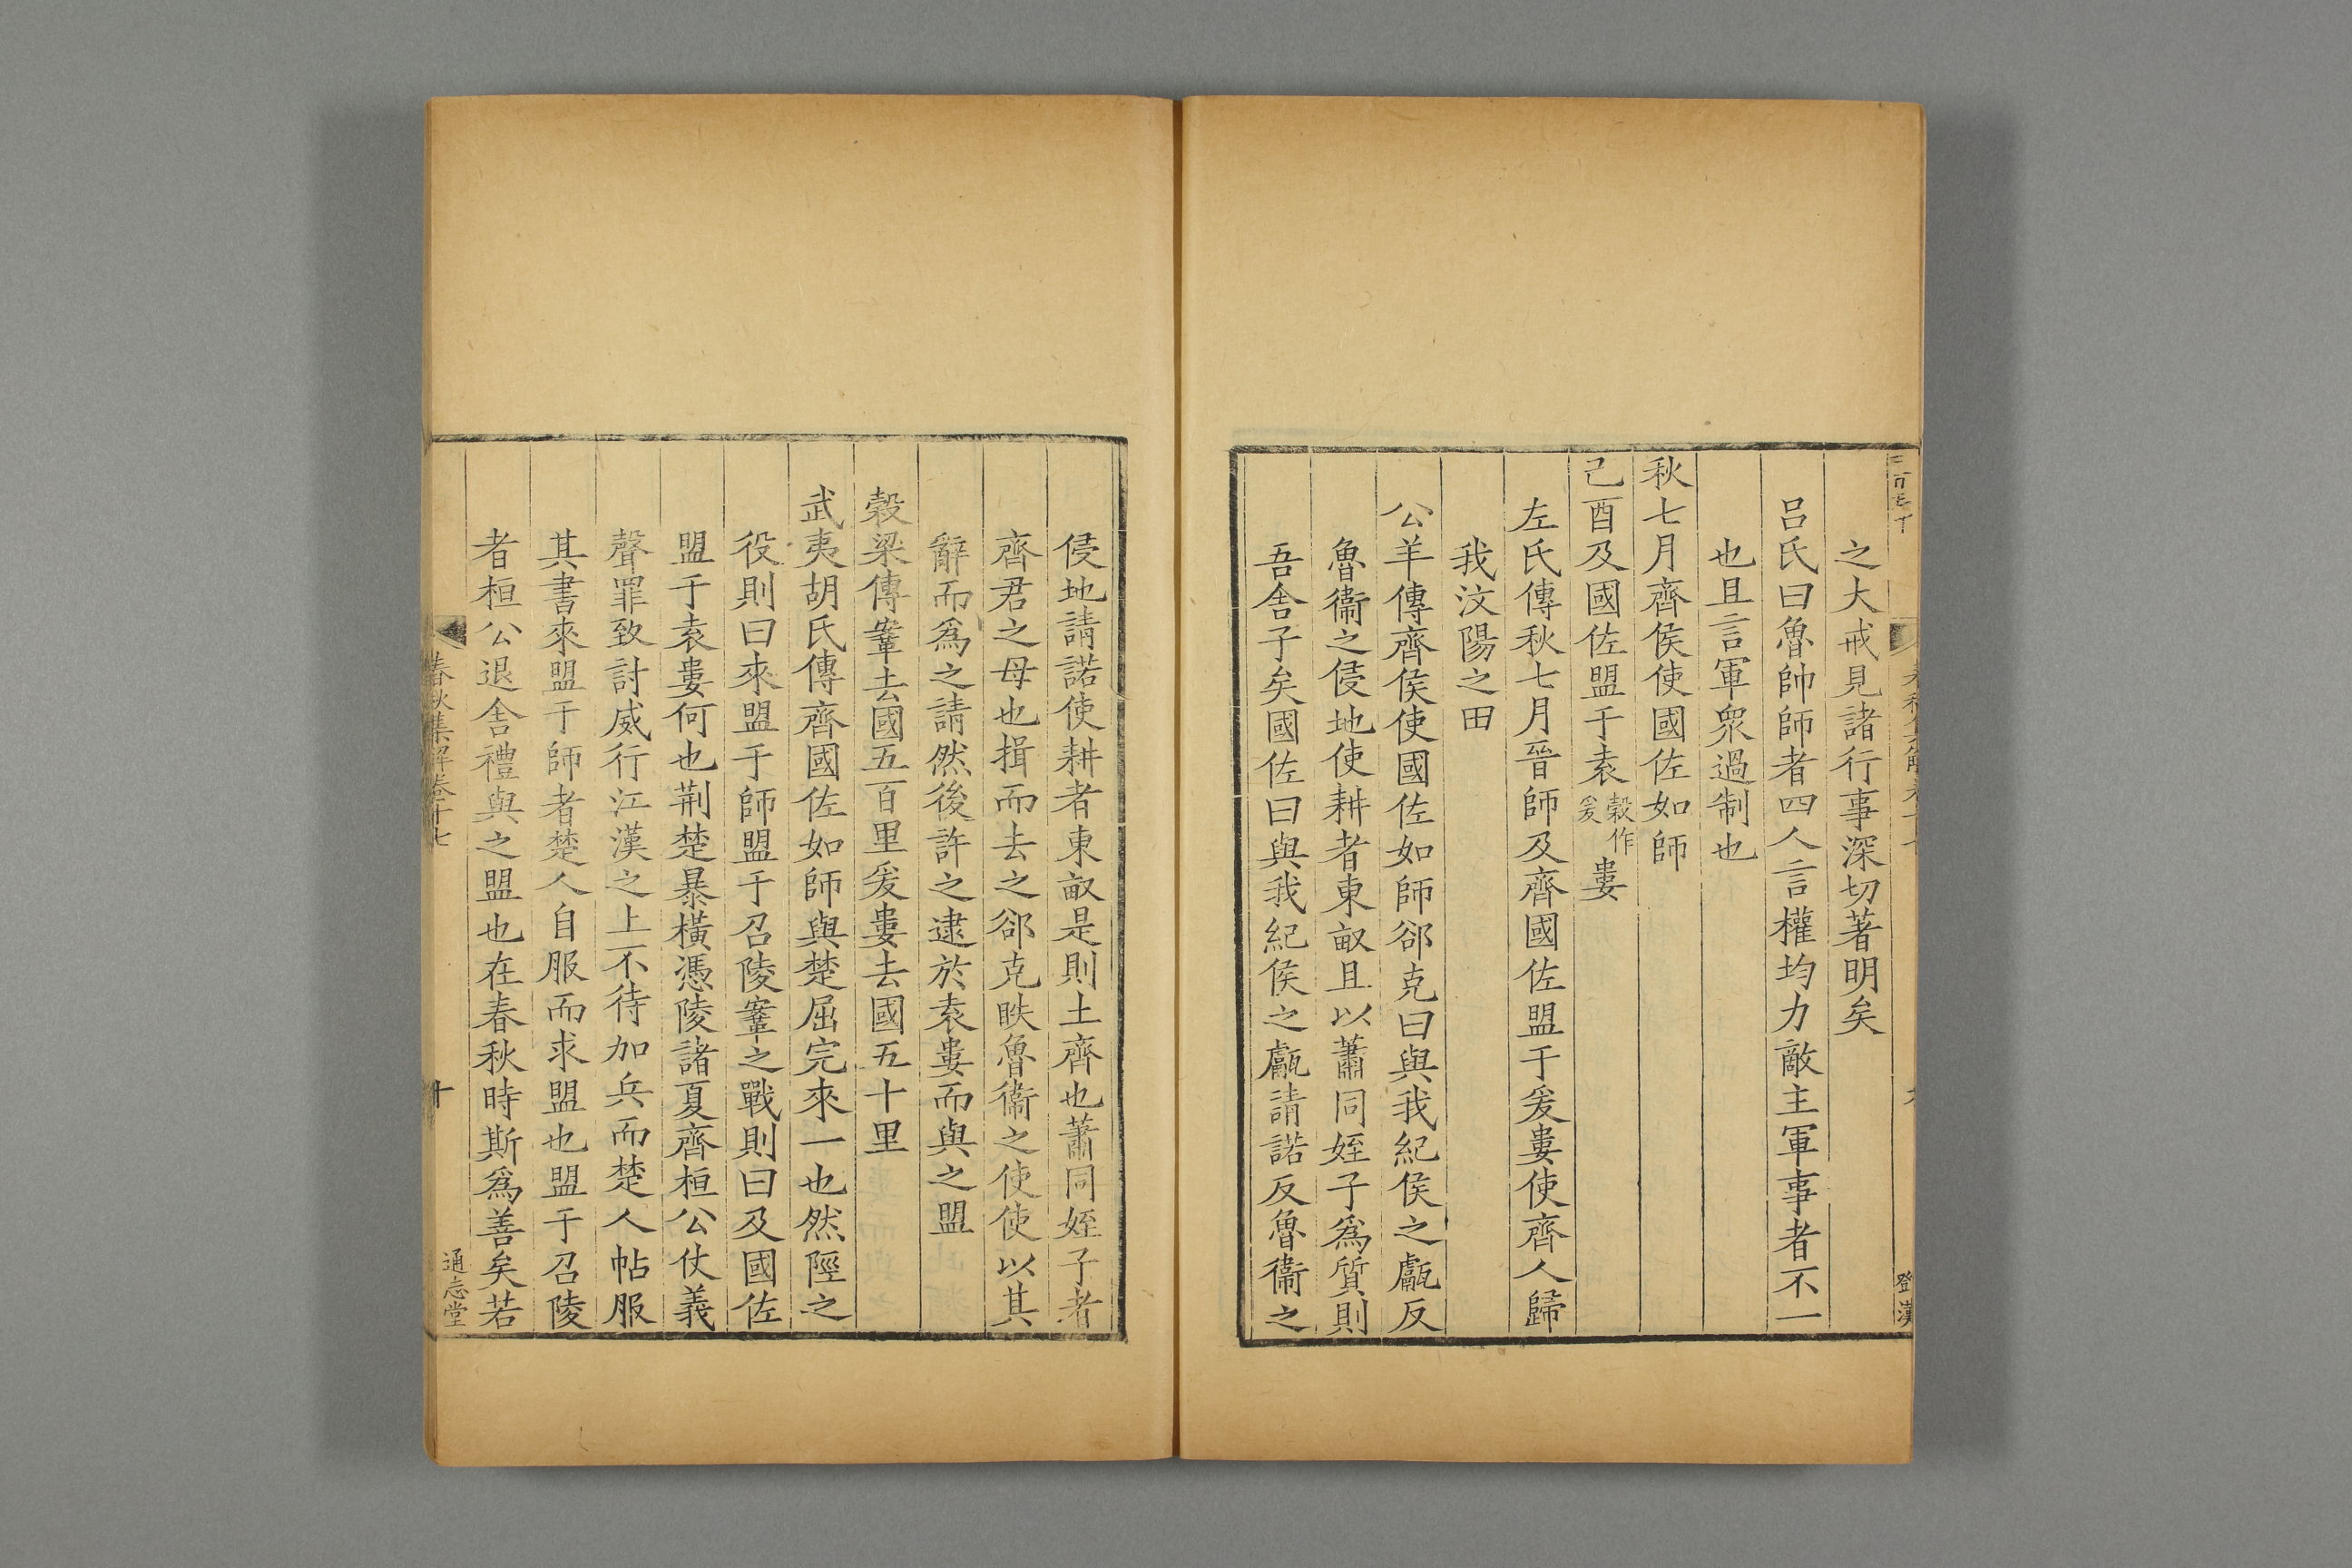 之大戒見諸行事深切著明矣
呂氏曰魯帥師者四人言權均力敵主軍事者不一
也且言軍衆過制也
秋七月齊侯使國佐如師
己酉及國佐盟于袁穀作爰婁
左氏傳秋七月晉師及齊國佐盟于爰婁使齊人歸
我汶陽之田
公羊傳齊侯使國佐如師郤克曰與我紀侯之甗反
魯衞之侵地使耕者東畝且以蕭同姪子爲質則
吾舍子矣國佐曰與我紀侯之甗請諾反魯衞之
侵地請諾使耕者東畝是則土齊也蕭同姪子者
齊君之母也揖而去之郤克眣魯衞之使使以其
辭而爲之請然後許之逮於袁婁而與之盟
穀梁傳鞌去國五百里爰婁去國五十里
武夷胡氏傳齊國佐如師與楚屈完來一也然陘之
役則曰來盟于師盟于召陵鞌之戰則曰及國佐
盟于袁婁何也荆楚暴橫憑陵諸夏齊桓公仗義
聲罪致討威行江漢之上不待加兵而楚人帖服
其書來盟于師者楚人自服而求盟也盟于召陵
者桓公退舍禮與之盟也在春秋時斯爲善矣若
春秋集解卷十七
十
通志堂